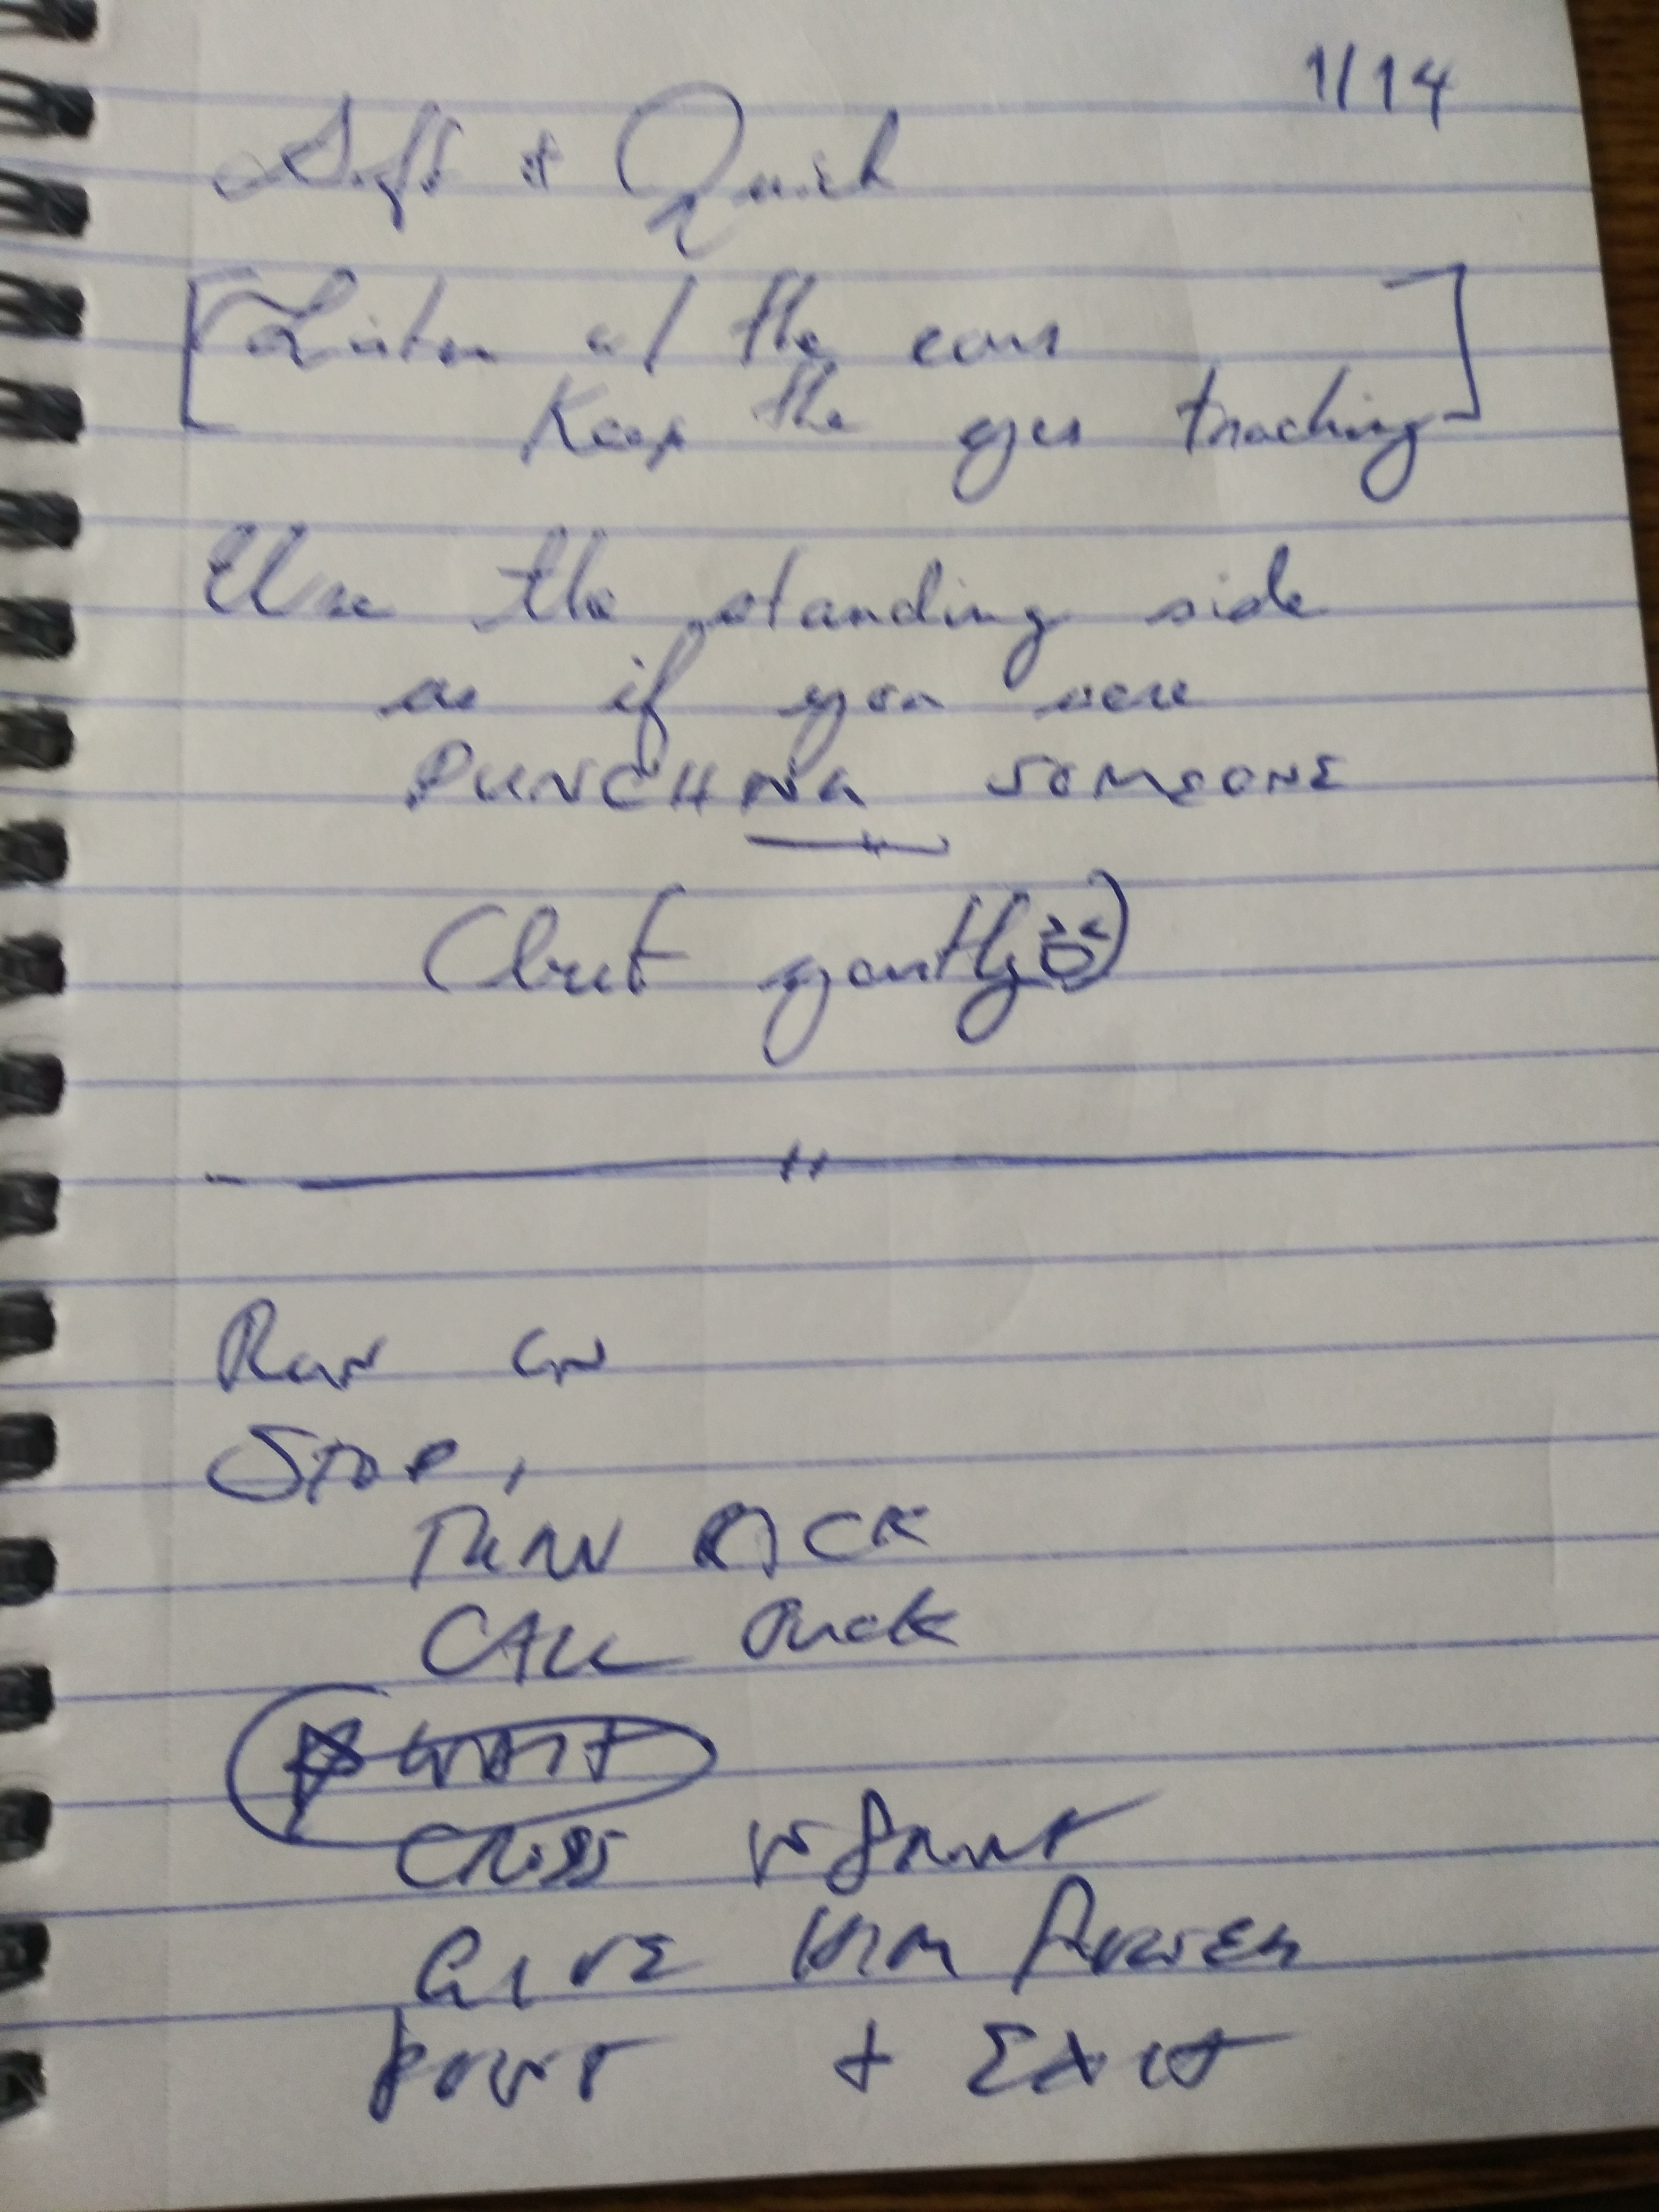 1/14
Soft & Quick
[Listen w/ the ears
Keep the eyes tracking]
Use the standing side
as if you were
PUNCHING SOMEONE
(but gently)
RUN ON
STOP,
TURN BACK
CALL PUCK
WAIT
CROSS
GIVE HIM FLOWER
POINT + EXIT